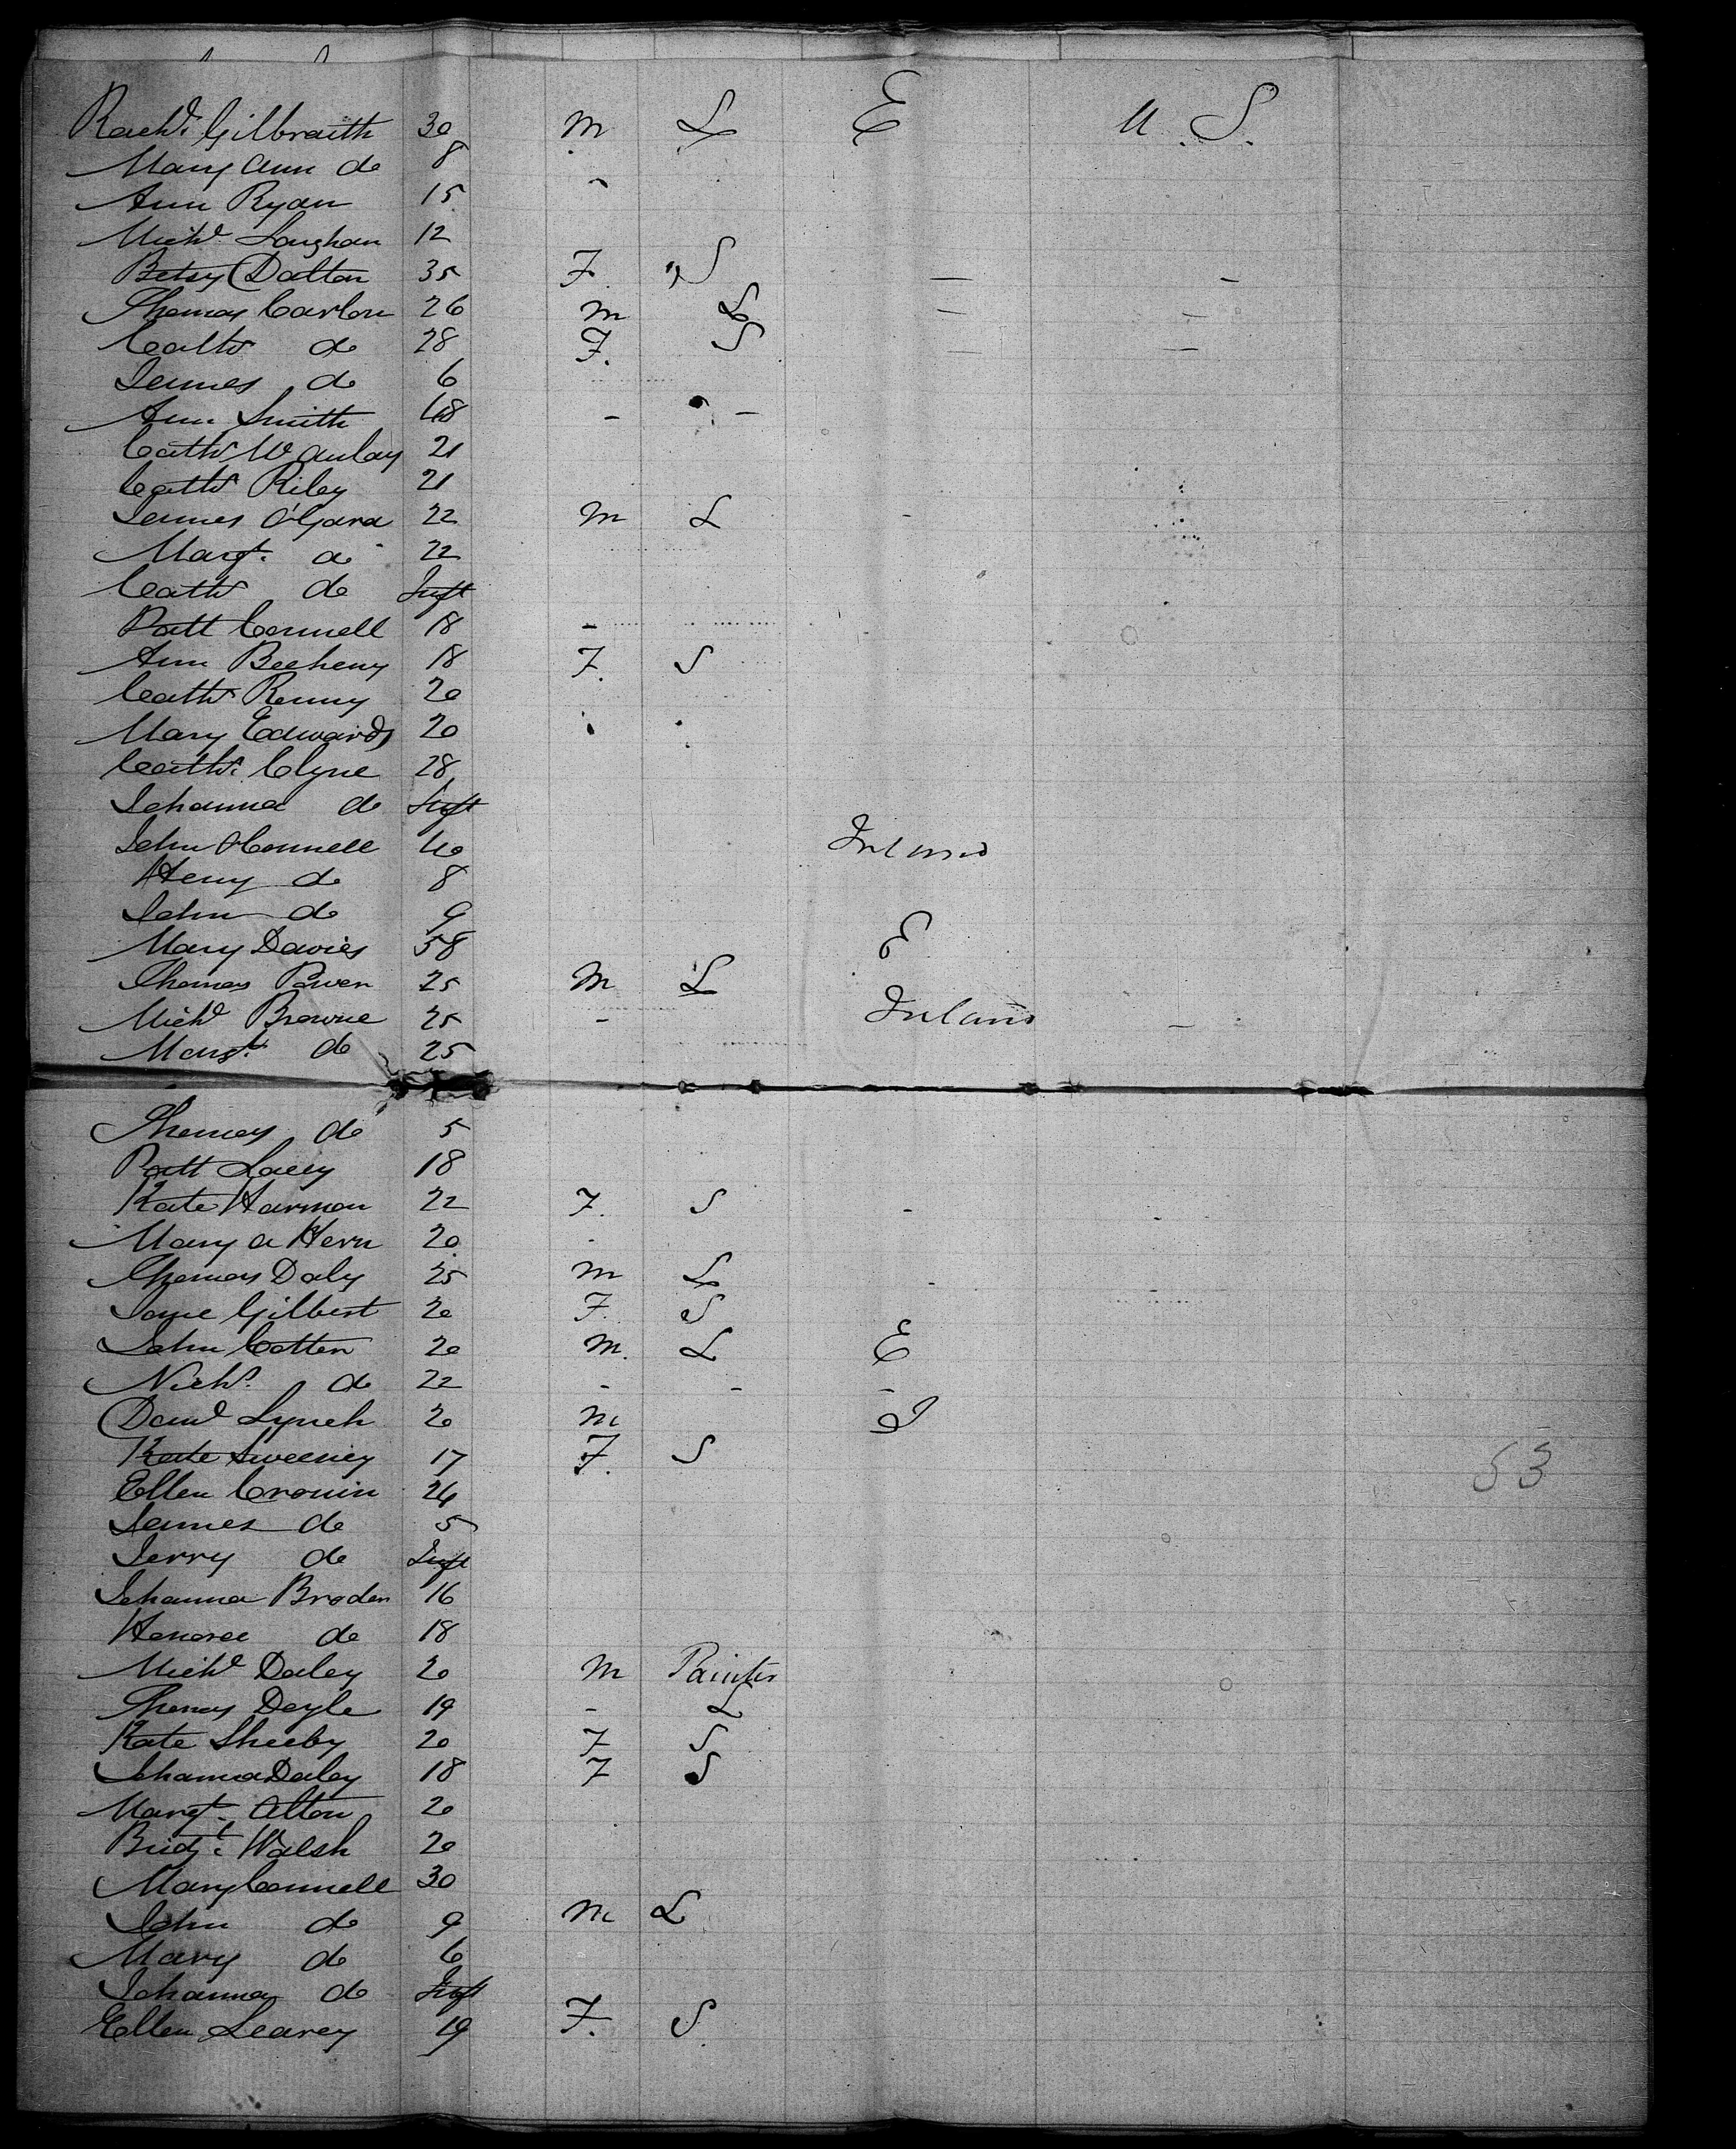 Rachl. Gilbraith 30 m L E U. S.
Mary Ann do 8
Ann Ryan 15 "
Michl. Laughan 12
Betsy Dalton 35 F. " S — —
Thomas Carlon 26 m L — —
Cath do 28 F. S — —
James do 6
Ann Smith 48 - " -
Cath McAulay 21
Cath Riley 21
James O'Gara 22 m L -
Margt. do 22
Cath do Inft
Patt Connell 18 -
Ann Beeheny 18 F. S
Cath Renny 20
Mary Edwards 20 " "
Cath. Clyne 28
Johanna do Inft
John O'Connell 40 Ireland
Heny do 8
John do 9
Mary Davies 58 E
Thomas Power 25 m L
Michl Browne 25 - Ireland -
Margt. do 25
Thomas do 5
Patt Lacey 18
Kate Harmon 22 F. S - -
Mary A Hern 20 -
Thomas Daly 25 m L -
Jane Gilbert 20 F. S
John Cotten 20 m. L E
Nichs. do 22 - - -
Danl Lynch 20 m I
Kate Sweeney 17 F. S
53
Ellen Cronin 24
James do 5
Jerry do Inft
Johanna Broder 16
Honoree do 18
Michl Daley 20 m Painter
Thomas Doyle 19 - L
Kate Sheehy 20 F S
Johanna Daley 18 F S
Margt. Alton 20
Bridgt. Walsh 20
Mary Connell 30
John do 9 m L
Mary do 6
Johanna do Inft
Ellen Learey 19 F. S